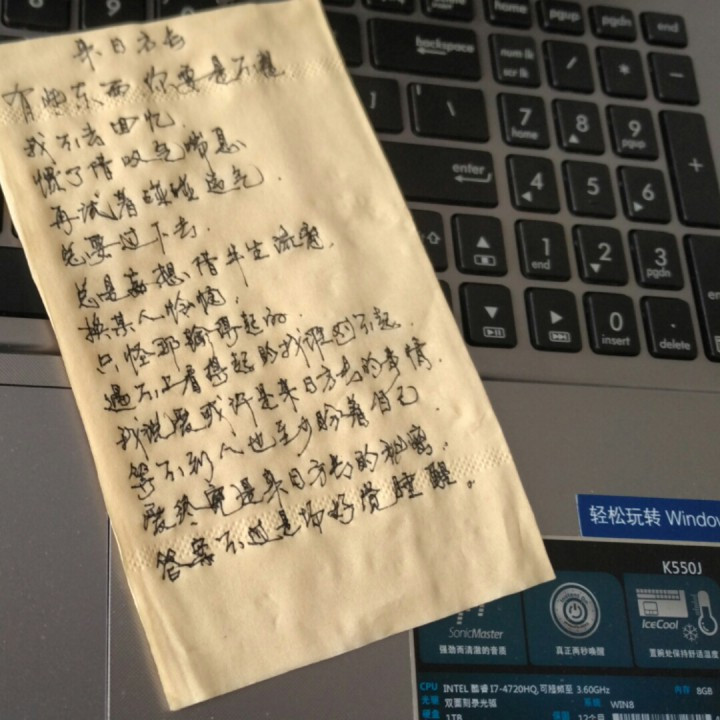 来日方长
有些东西你要是不想
我不去回忆.
惯了借叹气喘息
再试着碰碰运气.
总要过下去.
总是妄想借半生流离.
换某人怜惜.
只怪那输得起的.
遇不上看得起的我谁也不怨.
我说爱或许是来日方长的事情.
等不到人也至少盼着自己.
爱终究是来日方长的秘密.
答案不过是场好觉睡醒。
backspace
home
pgup
pgdn
end
num lk
scr lk
/
*
-
7
home
8
9
pgup
+
enter
4
5
6
1
end
2
3
pgdn
0
insert
.
delete
轻松玩转 Window
K550J
SonicMaster
强劲而清澈的音质
真正两秒唤醒
IceCool
置腕处保持舒适温度
CPU INTEL 酷睿 I7-4720HQ,可睿频至 3.60GHz
内存 8GB
光驱 双面刻录光驱
系统 WIN8
硬盘 1TB
保固 12个